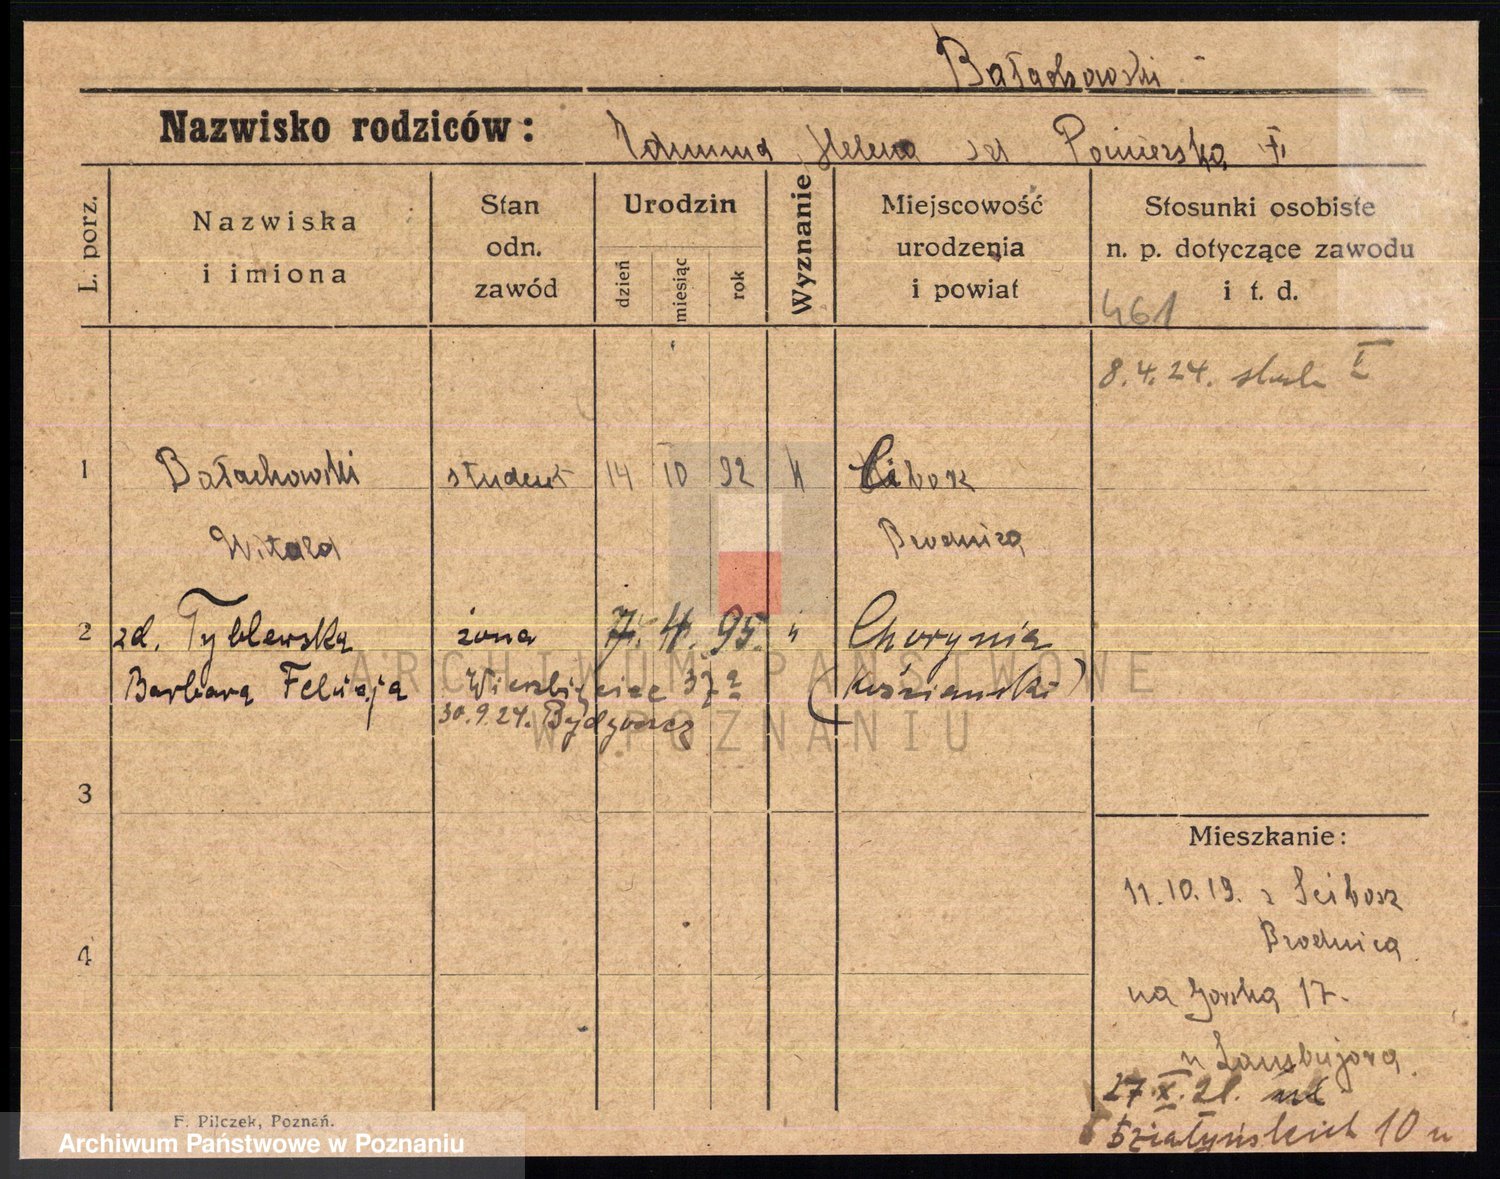 Bałachowski
Nazwisko rodziców: Helena
L. porz.
Nazwiska
i imiona
Stan
odn.
zawód
Urodzin
dzień
miesiąc
rok
Wyznanie
Miejscowość
urodzenia
i powiat
Stosunki osobiste
n. p. dotyczące zawodu
i t. d.
461
8.4.24.
1 Bałachowski student 14 10 92
Witold Brodnica
2 zd. Tyblewska żona 7. 4. 95. " Chorynia
Barbara Felicja Wierzbięcice 37a (kościański)
30.9.24. Bydgoszcz
3
4
Mieszkanie:
11.10.19. z
Brodnica
na 17.
27.X.21.
Działyńskich 10
F. Pilczek, Poznań.
ARCHIWUM PAŃSTWOWE
W POZNANIU
Archiwum Państwowe w Poznaniu